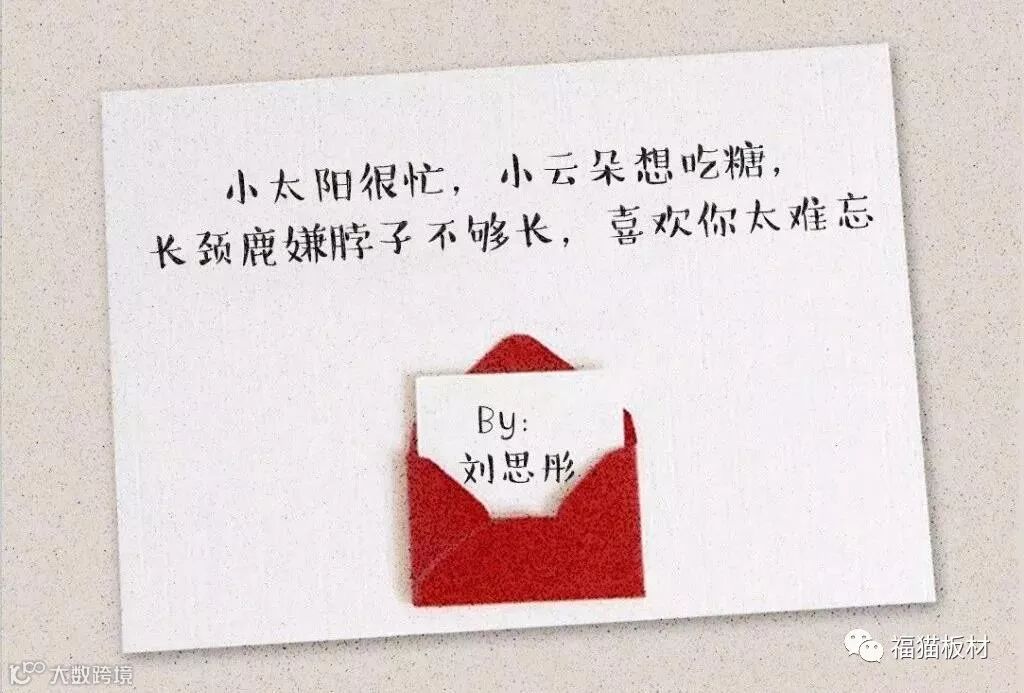 小太阳很忙，小云朵想吃糖，
长颈鹿嫌脖子不够长，喜欢你太难忘
By:
刘思彤
福猫板材
大数跨境